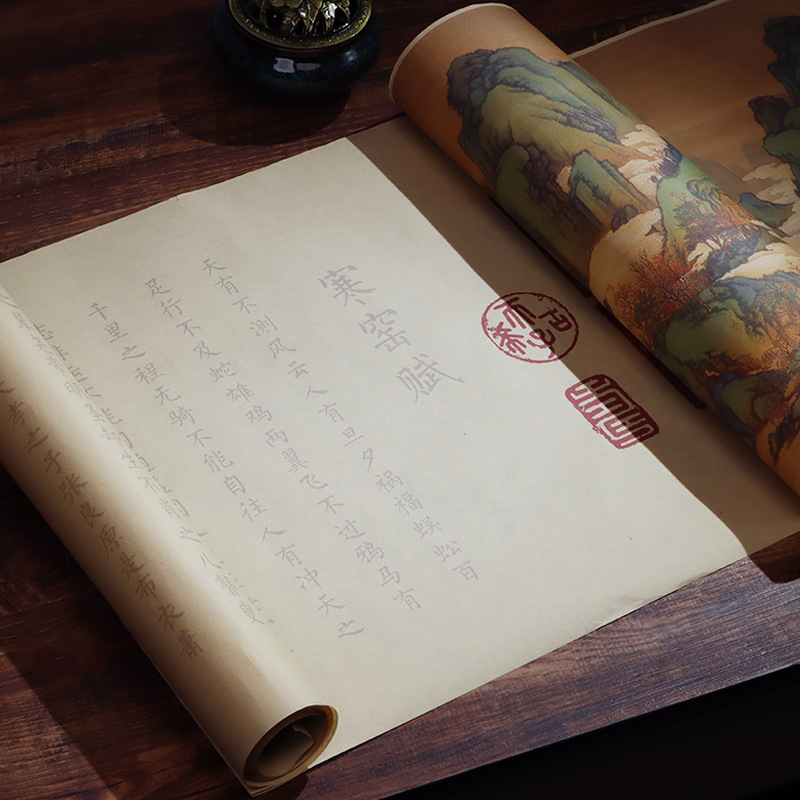 寒窑赋
天有不测风云人有旦夕祸福蜈蚣百
足行不及蛇雄鸡两翼飞不过鸦马有
千里之程无骑不能自往人有冲天之
志非运不能
孝之子张良原是布衣萧